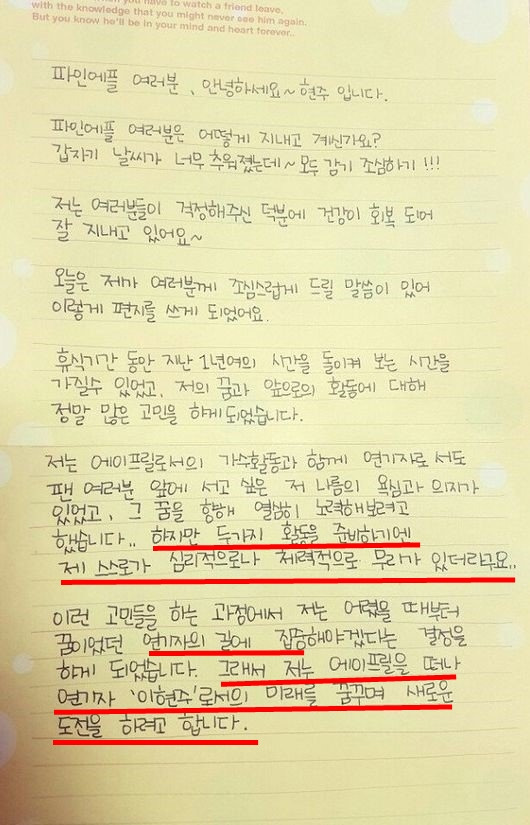 you have to watch a friend leave,
with the knowledge that you might never see him again.
But you know he'll be in your mind and heart forever..
파인에플 여러분, 안녕하세요~ 현주 입니다.
파인에플 여러분은 어떻게 지내고 계신가요?
갑자기 날씨가 너무 추워졌는데~ 모두 감기 조심하기!!!
저는 여러분들이 걱정해주신 덕분에 건강이 회복 되어
잘 지내고 있어요~
오늘은 제가 여러분께 조심스럽게 드릴 말씀이 있어
이렇게 편지를 쓰게 되었어요.
휴식기간 동안 지난 1년여의 시간을 돌이켜 보는 시간을
가질수 있었고, 저의 꿈과 앞으로의 활동에 대해
정말 많은 고민을 하게되었습니다.
저는 에이프릴로서의 가수활동과 함께 연기자로서도
팬 여러분 앞에 서고 싶은 저 나름의 욕심과 의지가
있었고, 그 꿈을 향해 열심히 노력해보려고
했습니다.. 하지만 두가지 활동을 준비하기엔
제 스스로가 심리적으로나 체력적으로 무리가 있더라구요..
이런 고민들을 하는 과정에서 저는 어렸을 때부터
꿈이었던 연기자의 길에 집중해야겠다는 결정을
하게 되었습니다. 그래서 저는 에이프릴을 떠나
연기자 '이현주'로서의 미래를 꿈꾸며 새로운
도전을 하려고 합니다.